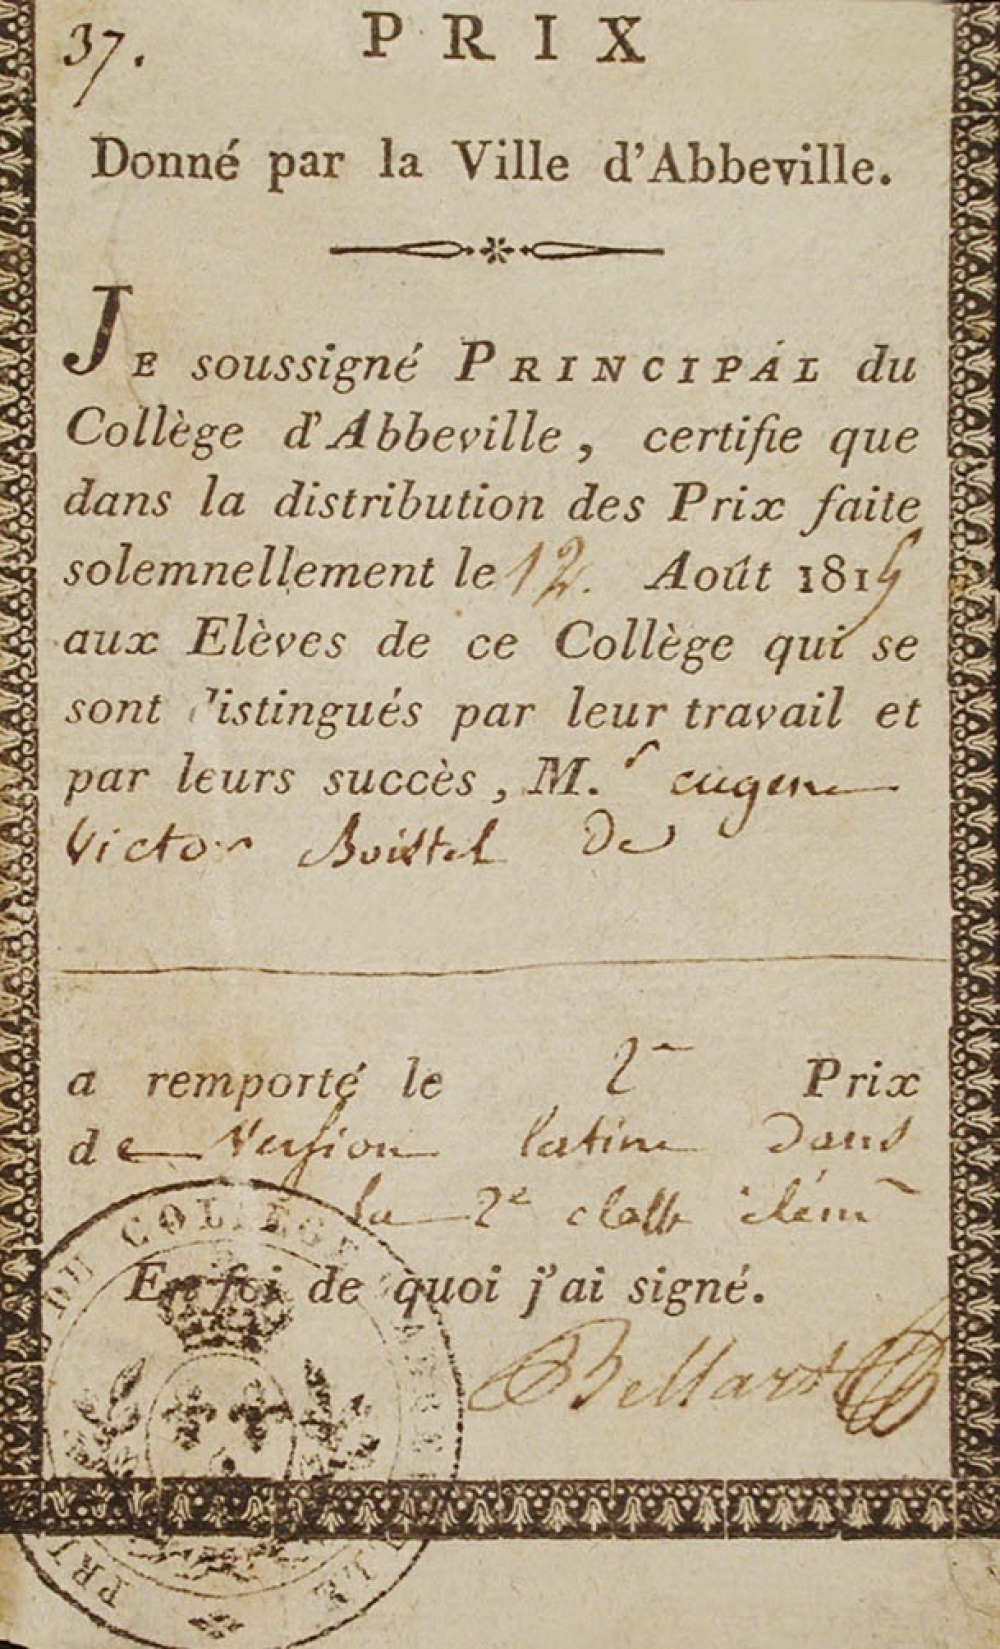 37.
PRIX
Donné par la Ville d'Abbeville.
JE soussigné PRINCIPAL du
Collège d'Abbeville, certifie que
dans la distribution des Prix faite
solemnellement le 12. Août 1815
aux Elèves de ce Collège qui se
sont distingués par leur travail et
par leurs succès, M.r eugene
Victor Boistel De
a remporté le 2e Prix
de Version latine Dans
la 2e classe élém
En foi de quoi j'ai signé.
Bellart
DU COLLEGE